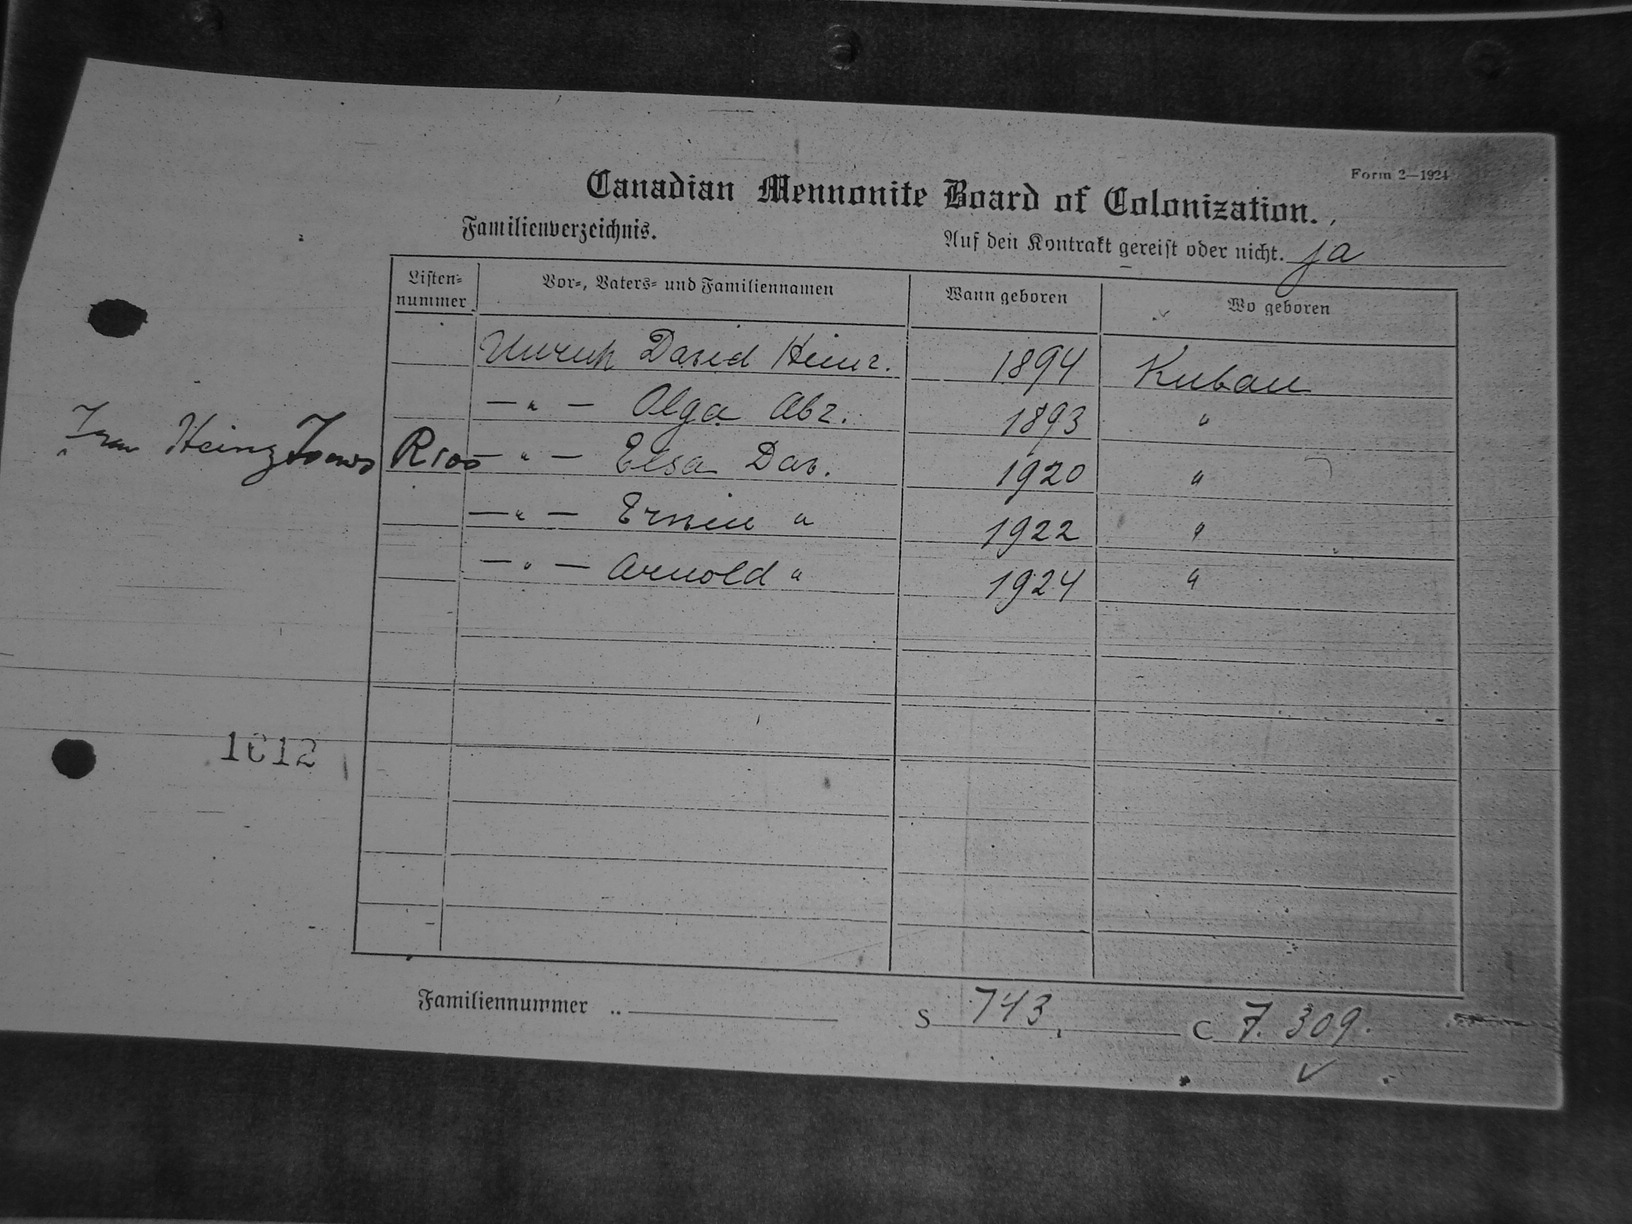 Form 2—1924
Canadian Mennonite Board of Colonization.
Familienverzeichnis.
Auf den Kontrakt gereist oder nicht. ja
Listen-nummer
Vor-, Vaters- und Familiennamen
Wann geboren
Wo geboren
Unruh David Heinr. 1894 Kuban
—"— Olga Abr. 1893 "
Frau Heinz Toews R100 —"— Elsa Dav. 1920 "
—"— Erwin " 1922 "
—"— Arnold " 1924 "
1612
Familiennummer
S 743, C 7.309.